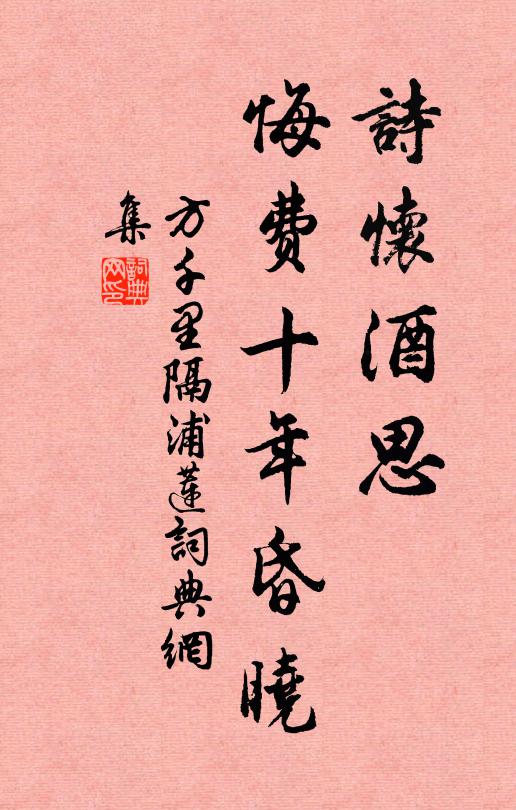 詩懷酒思
悔費十年昏曉
方千里隔浦蓮詞典網
集
詞典
网印